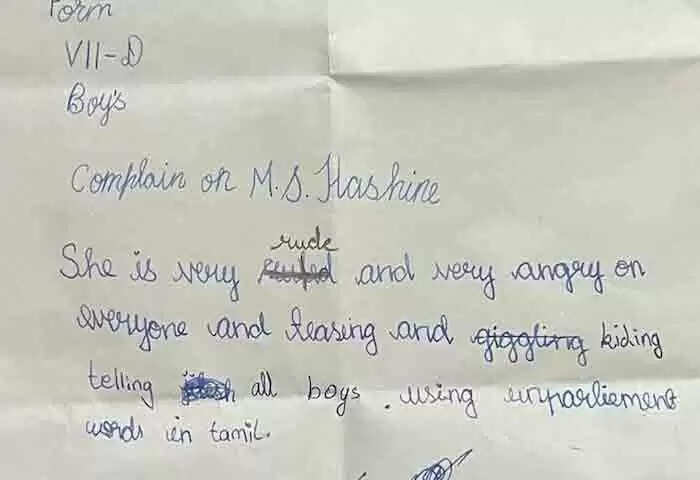 Form
VII-D
Boy's
Complain on M.S. Hashine
rude
She is very and very angry on
everyone and teasing and giggling kiding
telling all boys . using unparliement
words in tamil.